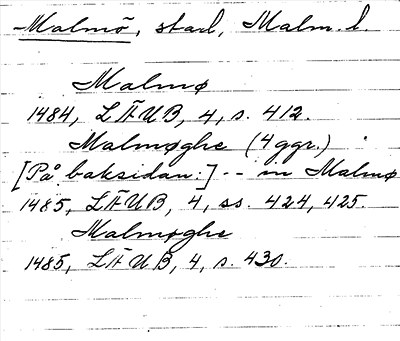 Malmö, stad, Malm. l.
Malmø
1484, LÄUB, 4, s. 412.
Malmøghe (4 ggr.)
[På baksidan:] -- m Malmø
1485, LÄUB, 4, ss. 424, 425.
Malmøghe
1485, LÄUB, 4, s. 430.